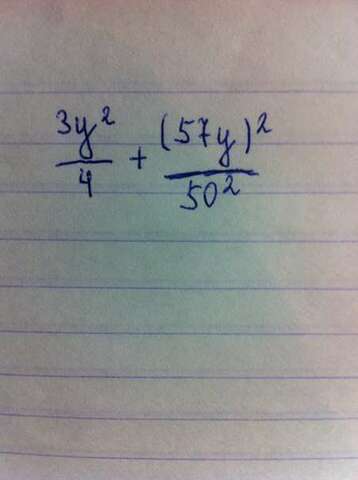 3y²/4 + (57y)²/50²